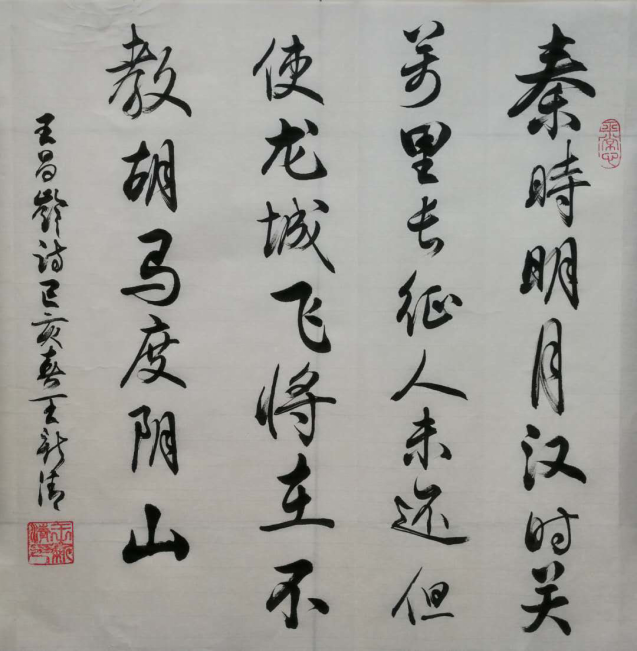 秦時明月汉时关
万里长征人未还但
使龙城飞将在不
教胡马度阴山
王昌龄诗己亥春王新清